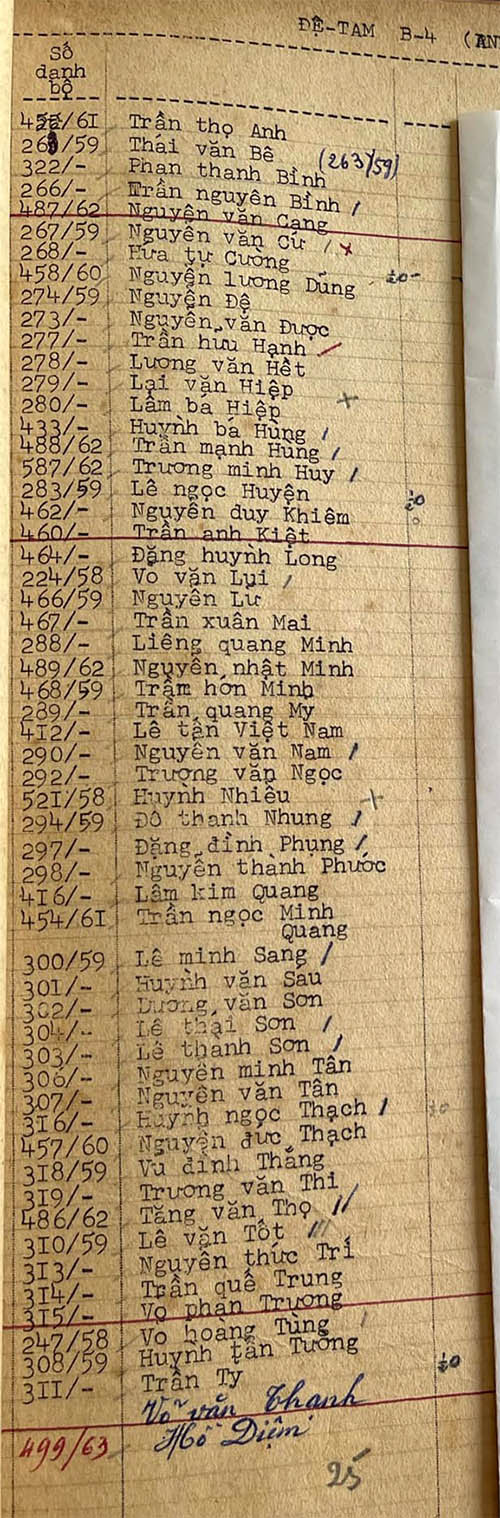 ĐỆ-TAM B-4 (AN
Số
danh
bộ
/61 Trần thọ Anh
269/59 Thái văn Bê
322/- Phan thanh Bỉnh (263/59)
266/- Trần nguyên Bỉnh /
487/62 Nguyễn văn Cang
267/59 Nguyễn văn Cư / x
268/- Hứa tự Cường
458/60 Nguyễn lương Dũng
274/59 Nguyễn Đệ
273/- Nguyễn văn Được
277/- Trần hưu Hạnh /
278/- Lương văn Hết
279/- Lại văn Hiệp
280/- Lâm bá Hiệp x
433/- Huỳnh bá Hùng /
488/62 Trần mạnh Hùng /
587/62 Trương minh Huy /
283/59 Lê ngọc Huyện
462/- Nguyễn duy Khiêm
460/- Trần anh Kiệt
464/- Đặng huỳnh Long
224/58 Vo văn Lụi /
466/59 Nguyễn Lư
467/- Trần xuân Mai
288/- Liêng quang Minh
489/62 Nguyễn nhật Minh
468/59 Trầm hớn Minh
289/- Trần quang My
412/- Lê tấn Việt Nam
290/- Nguyễn văn Nam /
292/- Trương văn Ngọc
521/58 Huỳnh Nhiêu x
294/59 Đô thanh Nhung /
297/- Đặng đình Phụng /
298/- Nguyễn thành Phước
416/- Lâm kim Quang
454/61 Trần ngọc Minh
Quang
300/59 Lê minh Sang /
301/- Huỳnh văn Sáu
302/- Dương văn Sơn
304/- Lê thái Sơn /
303/- Lê thành Sơn /
306/- Nguyễn minh Tân
307/- Nguyễn văn Tân
316/- Huỳnh ngọc Thạch /
457/60 Nguyễn đức Thạch
318/59 Vu đình Thắng
319/- Trương văn Thi
486/62 Tăng văn Thọ //
310/59 Lê văn Tốt ///
313/- Nguyễn thức Tri
314/- Trần quế Trung
315/- Vo phan Trương
247/58 Vo hoàng Tùng /
308/59 Huỳnh tấn Tường
311/- Trần Ty
Võ văn Thạnh
499/63 Hồ Diệm
25